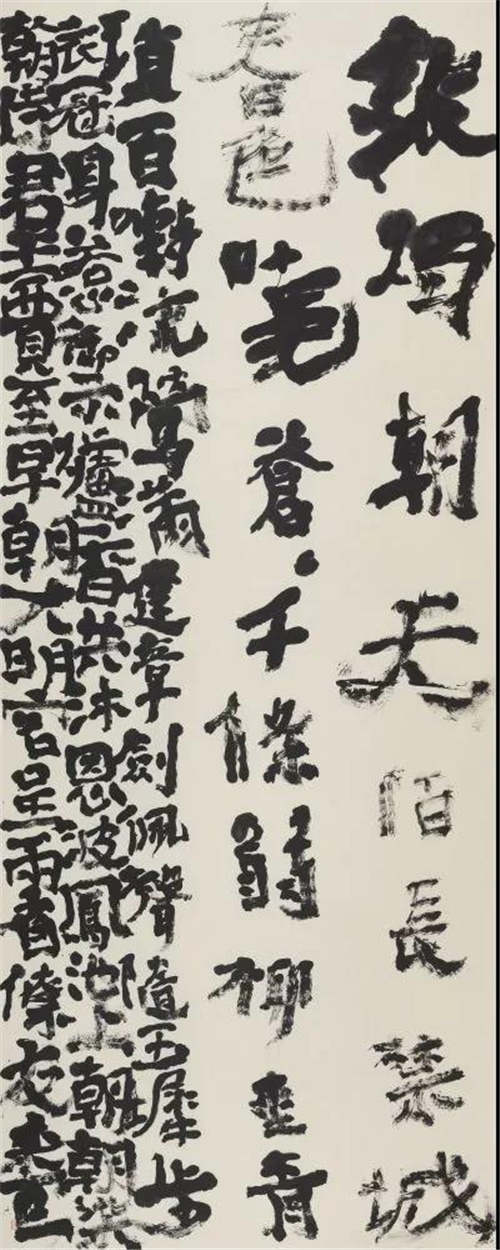 銀燭朝天陌長禁城
春色曉蒼々千條弱柳垂青
瑣百囀流鶯滿建章劍佩聲隨玉墀步
衣冠身惹禦爐香共沐恩波鳳池上朝朝染
翰侍君王賈至早朝大明宮呈兩省僚友